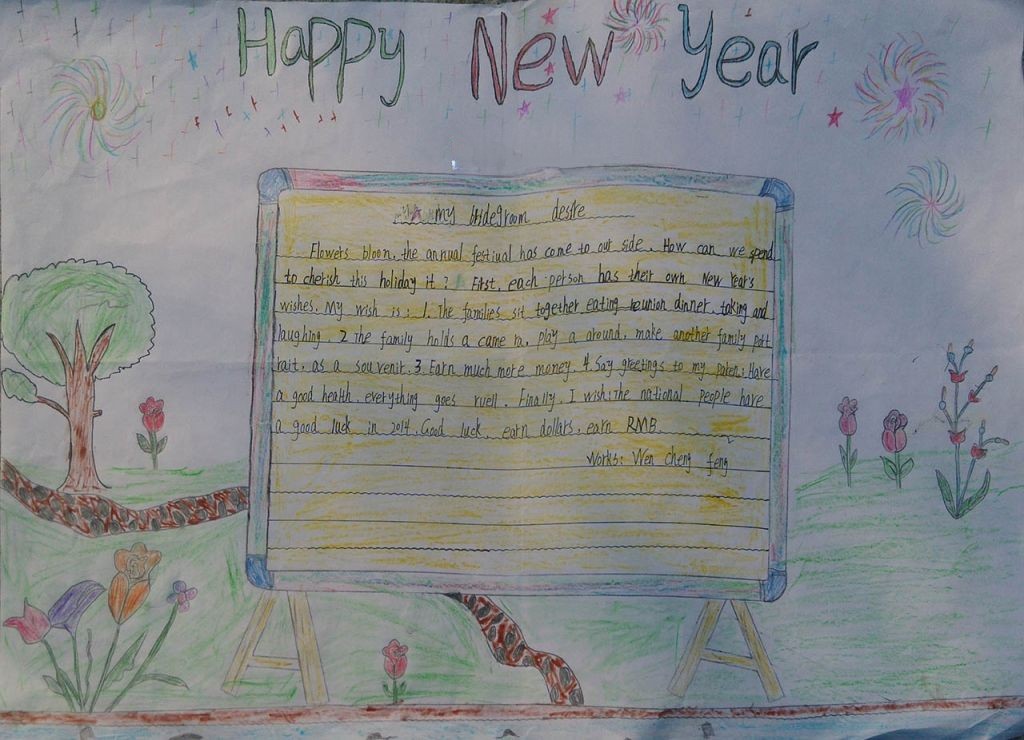 Happy New Year
my bridegroom desire
Flowers bloon, the annual festival has come to out side. How can we spend
to cherish this holiday it? First, each person has their own New Year's
wishes. My wish is: 1. The families sit together eating reunion dinner, taking and
laughing. 2 The family holds a came ra, play a around, make another family port
rait, as a souvenir. 3 Earn much more money. 4 Say greetings to my paten: Have
a good health, everything goes ruell. Finally, I wish: the national people have
a good luck in 2014. Good luck, earn dollars, earn RMB.
Works: Wen cheng feng